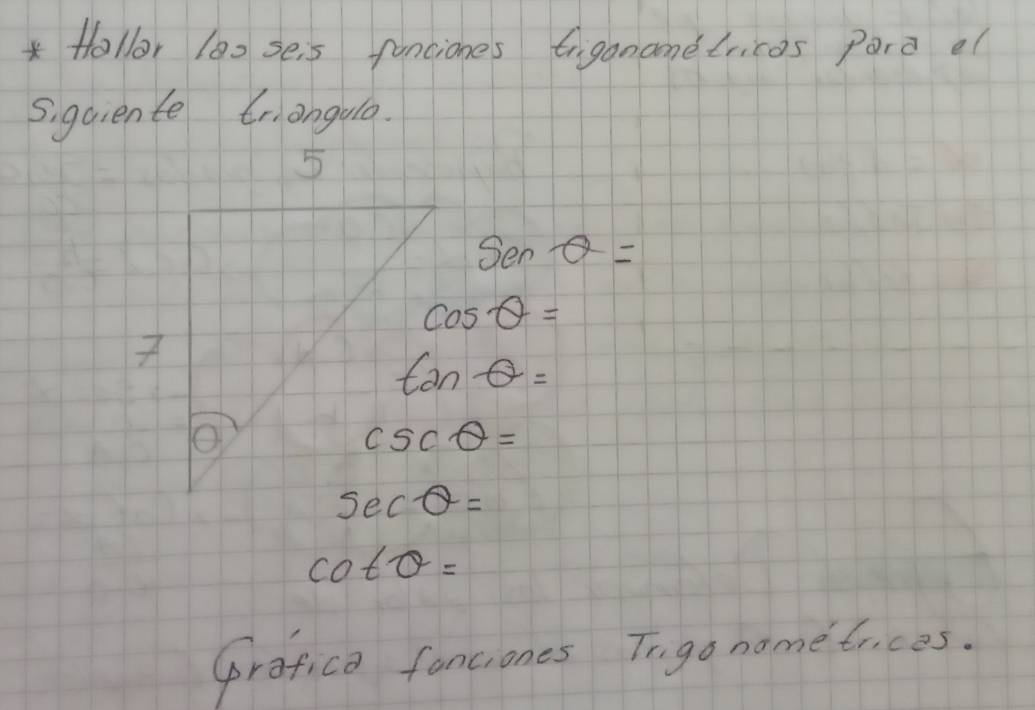 * Hallar las seis funciones trigonométricas para el
siguiente triangulo.
5
Sen θ =
cos θ =
7
tan θ =
θ
csc θ =
sec θ =
cot θ =
Gráfica funciones Trigonométricas.